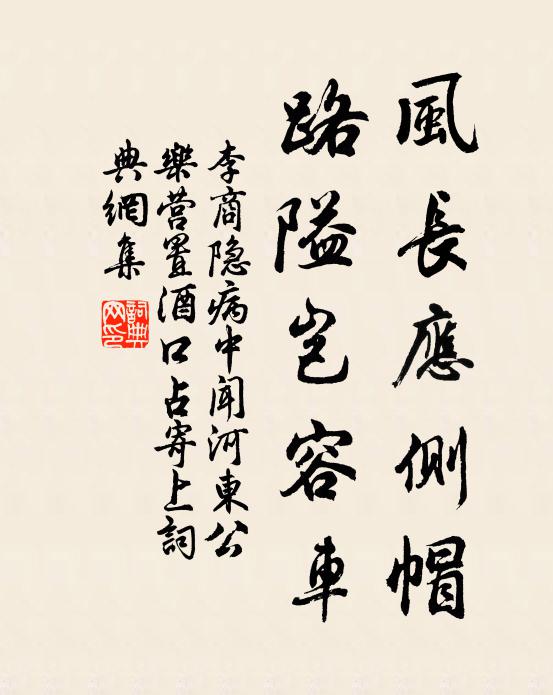 風長應側帽
路隘岂容車
李商隐病中闻河東公
樂营置酒口占寄上詞
典網集
詞典網印